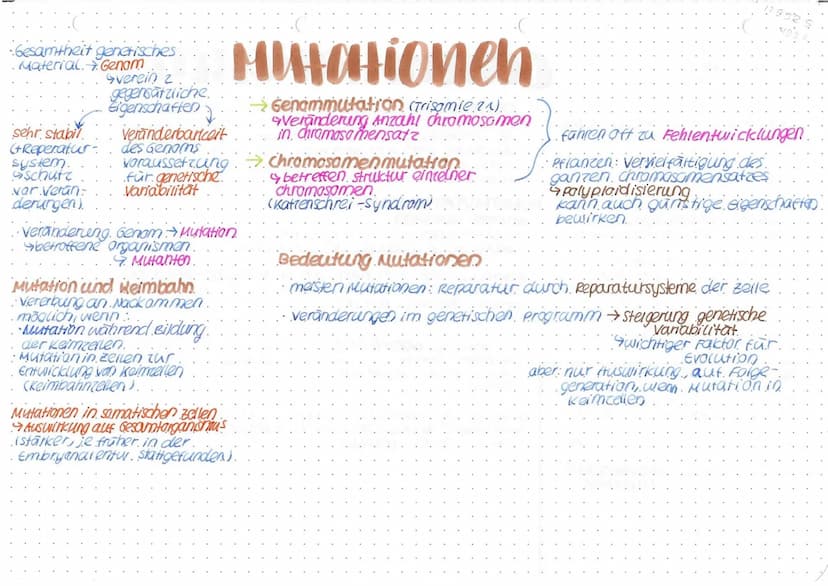 Mutationen
· Gesamtheit genetisches
Material → Genom
↳ verein 2
gegensätzliche
Eigenschaften
sehr stabil
(→ Reperatur-
system
↳ Schutz
vor Verän-
derungen)
Veränderbarkeit
des Genoms
Voraussetzung
für genetische
Variabilität
· Veränderung Genom → Mutation
↳ betroffene Organismen
↳ Mutanten
Mutation und Keimbahn
· Vererbung an Nachkommen
möglich, wenn:
· Mutation während Bildung
der Keimzellen
· Mutation in Zellen zur
Entwicklung von Keimzellen
(Keimbahnzellen)
Mutationen in somatischen Zellen
↳ Auswirkung auf Gesamtorganismus
(stärker, je früher in der
Embryonalentw. stattgefunden)
→ Genommutation (Trisomie 21)
↳ Veränderung Anzahl Chromosomen
in Chromosomensatz
→ Chromosomenmutation
↳ betreffen Struktur einzelner
Chromosomen
(Katzenschrei-Syndrom)
führen oft zu Fehlentwicklungen
Pflanzen: Vervielfältigung des
ganzen Chromosomensatzes
↳ Polyploidisierung
kann auch günstige Eigenschaften
bewirken
Bedeutung Mutationen
· meisten Mutationen: Reparatur durch Reparatursysteme der Zelle
· Veränderungen im genetischen Programm → Steigerung genetische
Variabilität
↳ wichtiger Faktor für
Evolution
aber: nur Auswirkung auf Folge-
generation, wenn Mutation in
Keimzellen